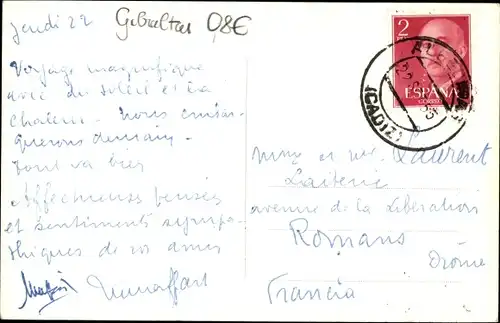 Jeudi 22
Gibraltar 0,8€
Voyage magnifique
avec du soleil et la
chaleur. nous embar-
querons demain.
Tout va bien
Affectueuses pensées
et sentiments sympa-
thiques de vos amis
2
ESPAÑA
CORREO
ALGECIRAS
(CADIZ)
Mme et Mr. Laurent
Laiterie
avenue de la Libération
Romans
Drôme
Francia